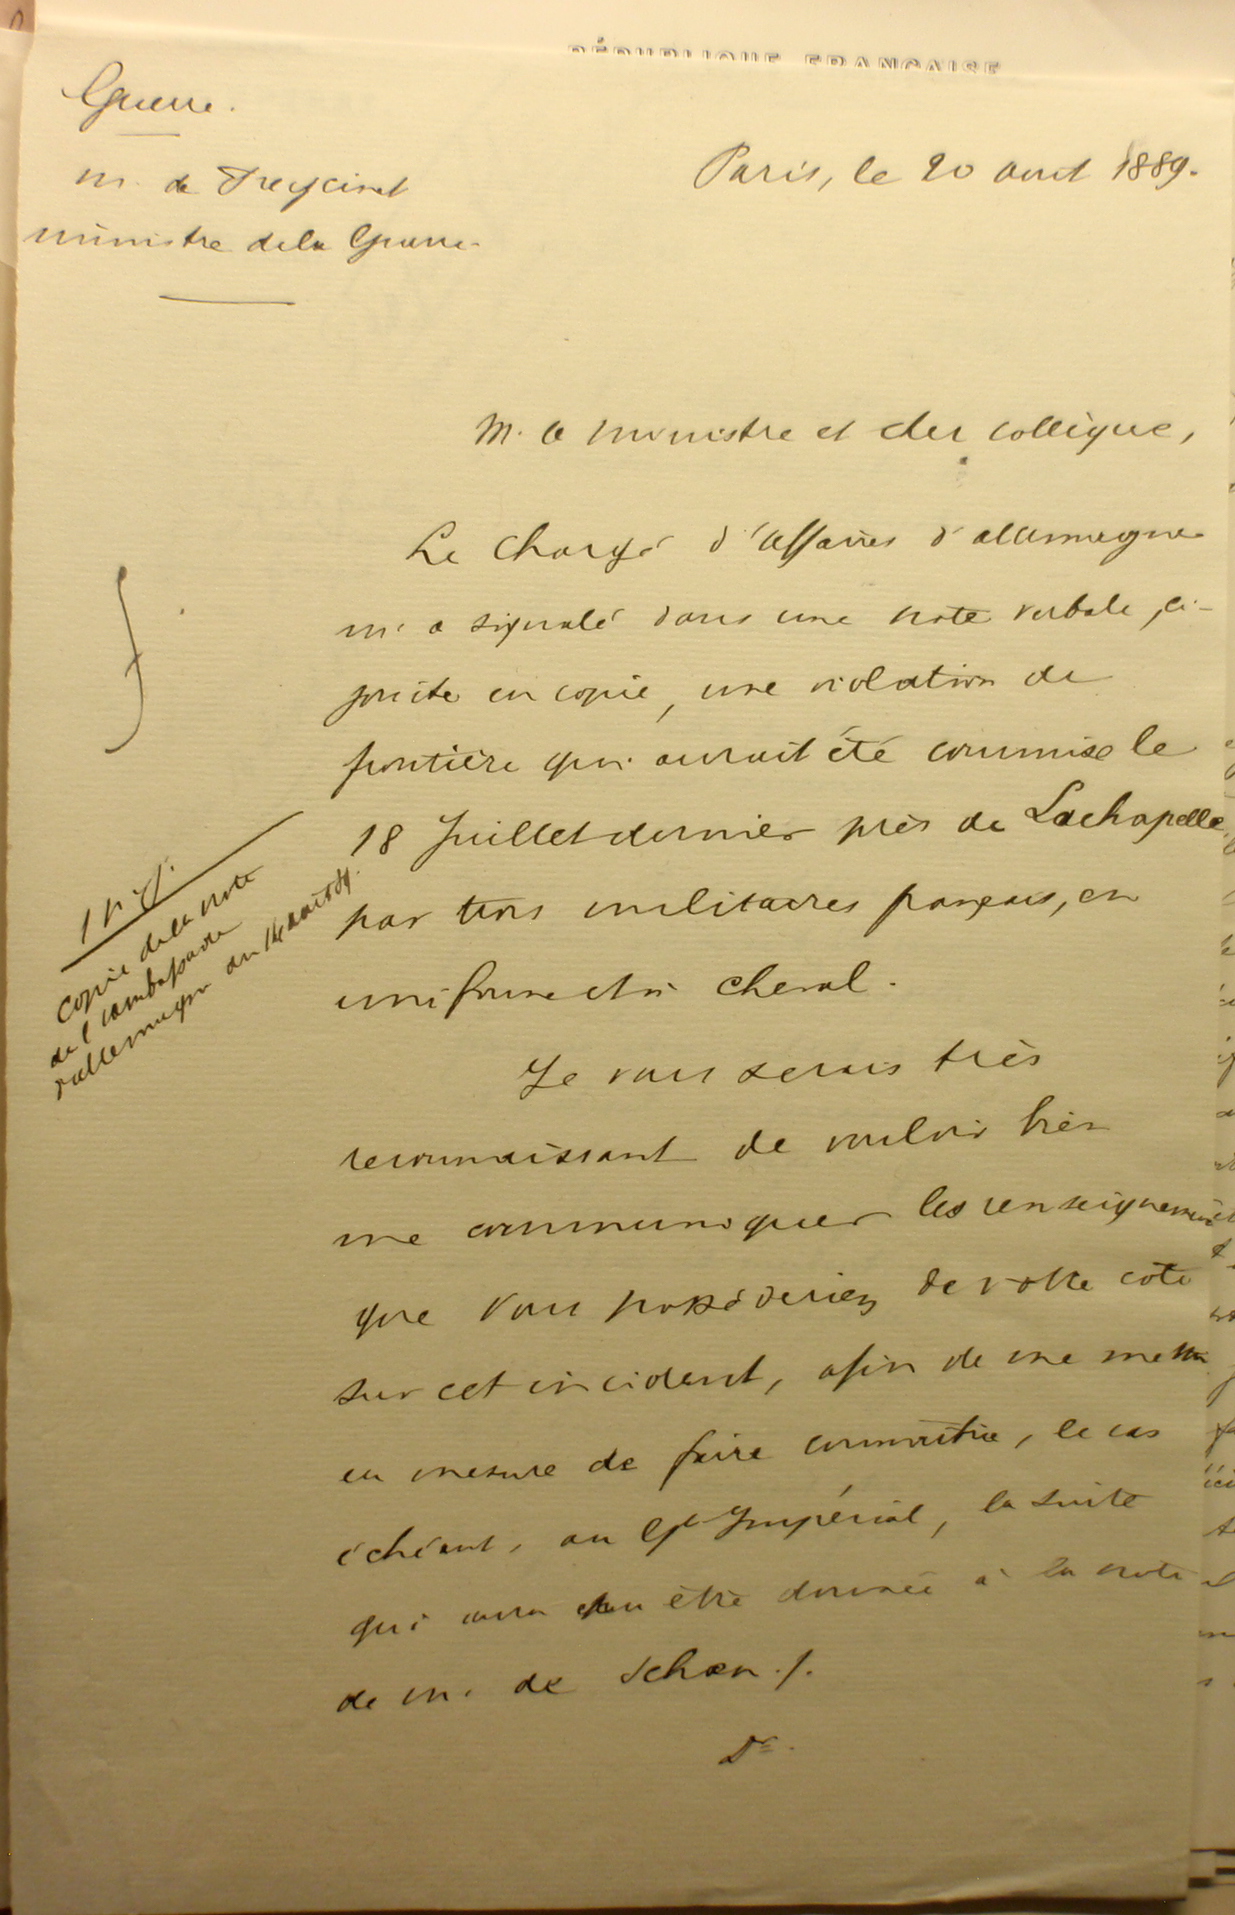 RÉPUBLIQUE FRANÇAISE
Guerre.
M. de Freycinet
ministre de la Guerre
Paris, le 20 aout 1889.
M. le ministre et cher collègue,
Le Chargé d'affaires d'allemagne
m'a signalé dans une note verbale, ci-
jointe en copie, une violation de
frontière qui aurait été commise le
18 Juillet dernier près de Lachapelle
par trois militaires français, en
uniforme et à cheval.
Je vous serais très
reconnaissant de vouloir bien
me communiquer les renseignements
que vous possèderiez de votre coté
sur cet incident, afin de me mettre
en mesure de faire connaitre, le cas
échéant, au Gt Impérial, la suite
qui aura pu être donnée à la note
de M. de Schœn ./.
Copie de la note
de l'ambassade
d'allemagne du 14 aout 89.